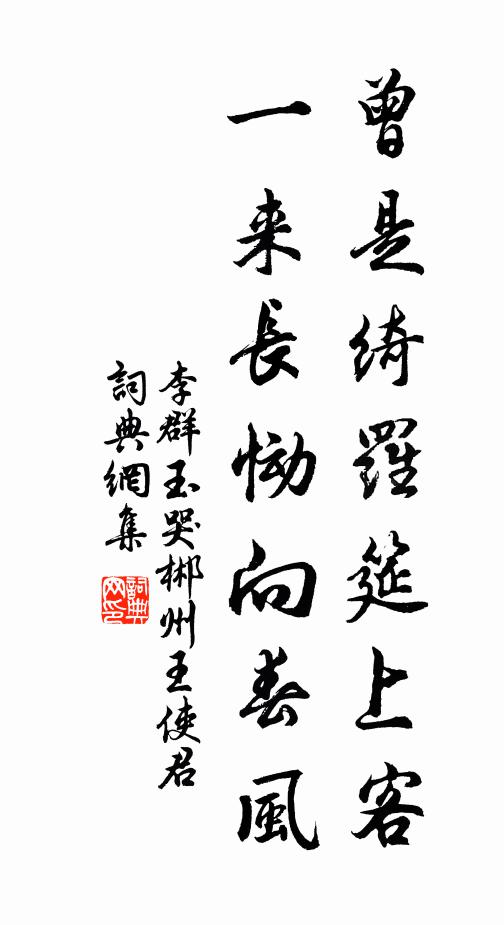 曾是綺羅筵上客
一来長慟向春風
李群玉哭郴州王使君
詞典網集
詞典
网印